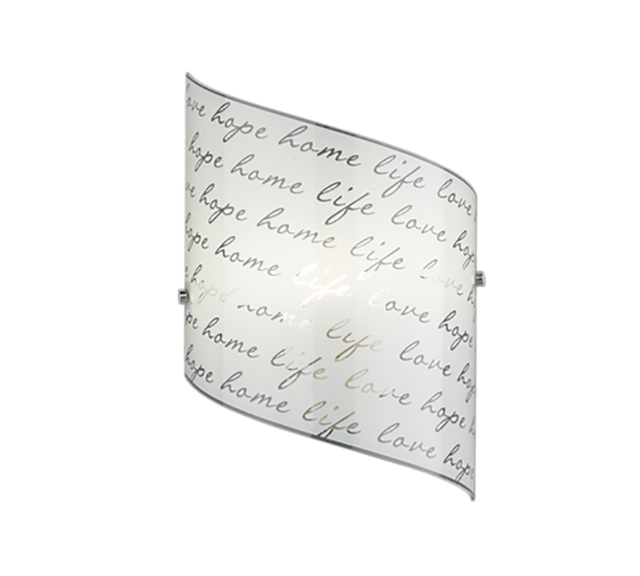 love hope home life love
hope home life love hop
hope home life love h
hope home life love hope
hope home life love hop
home life love hope
hope home life love hop